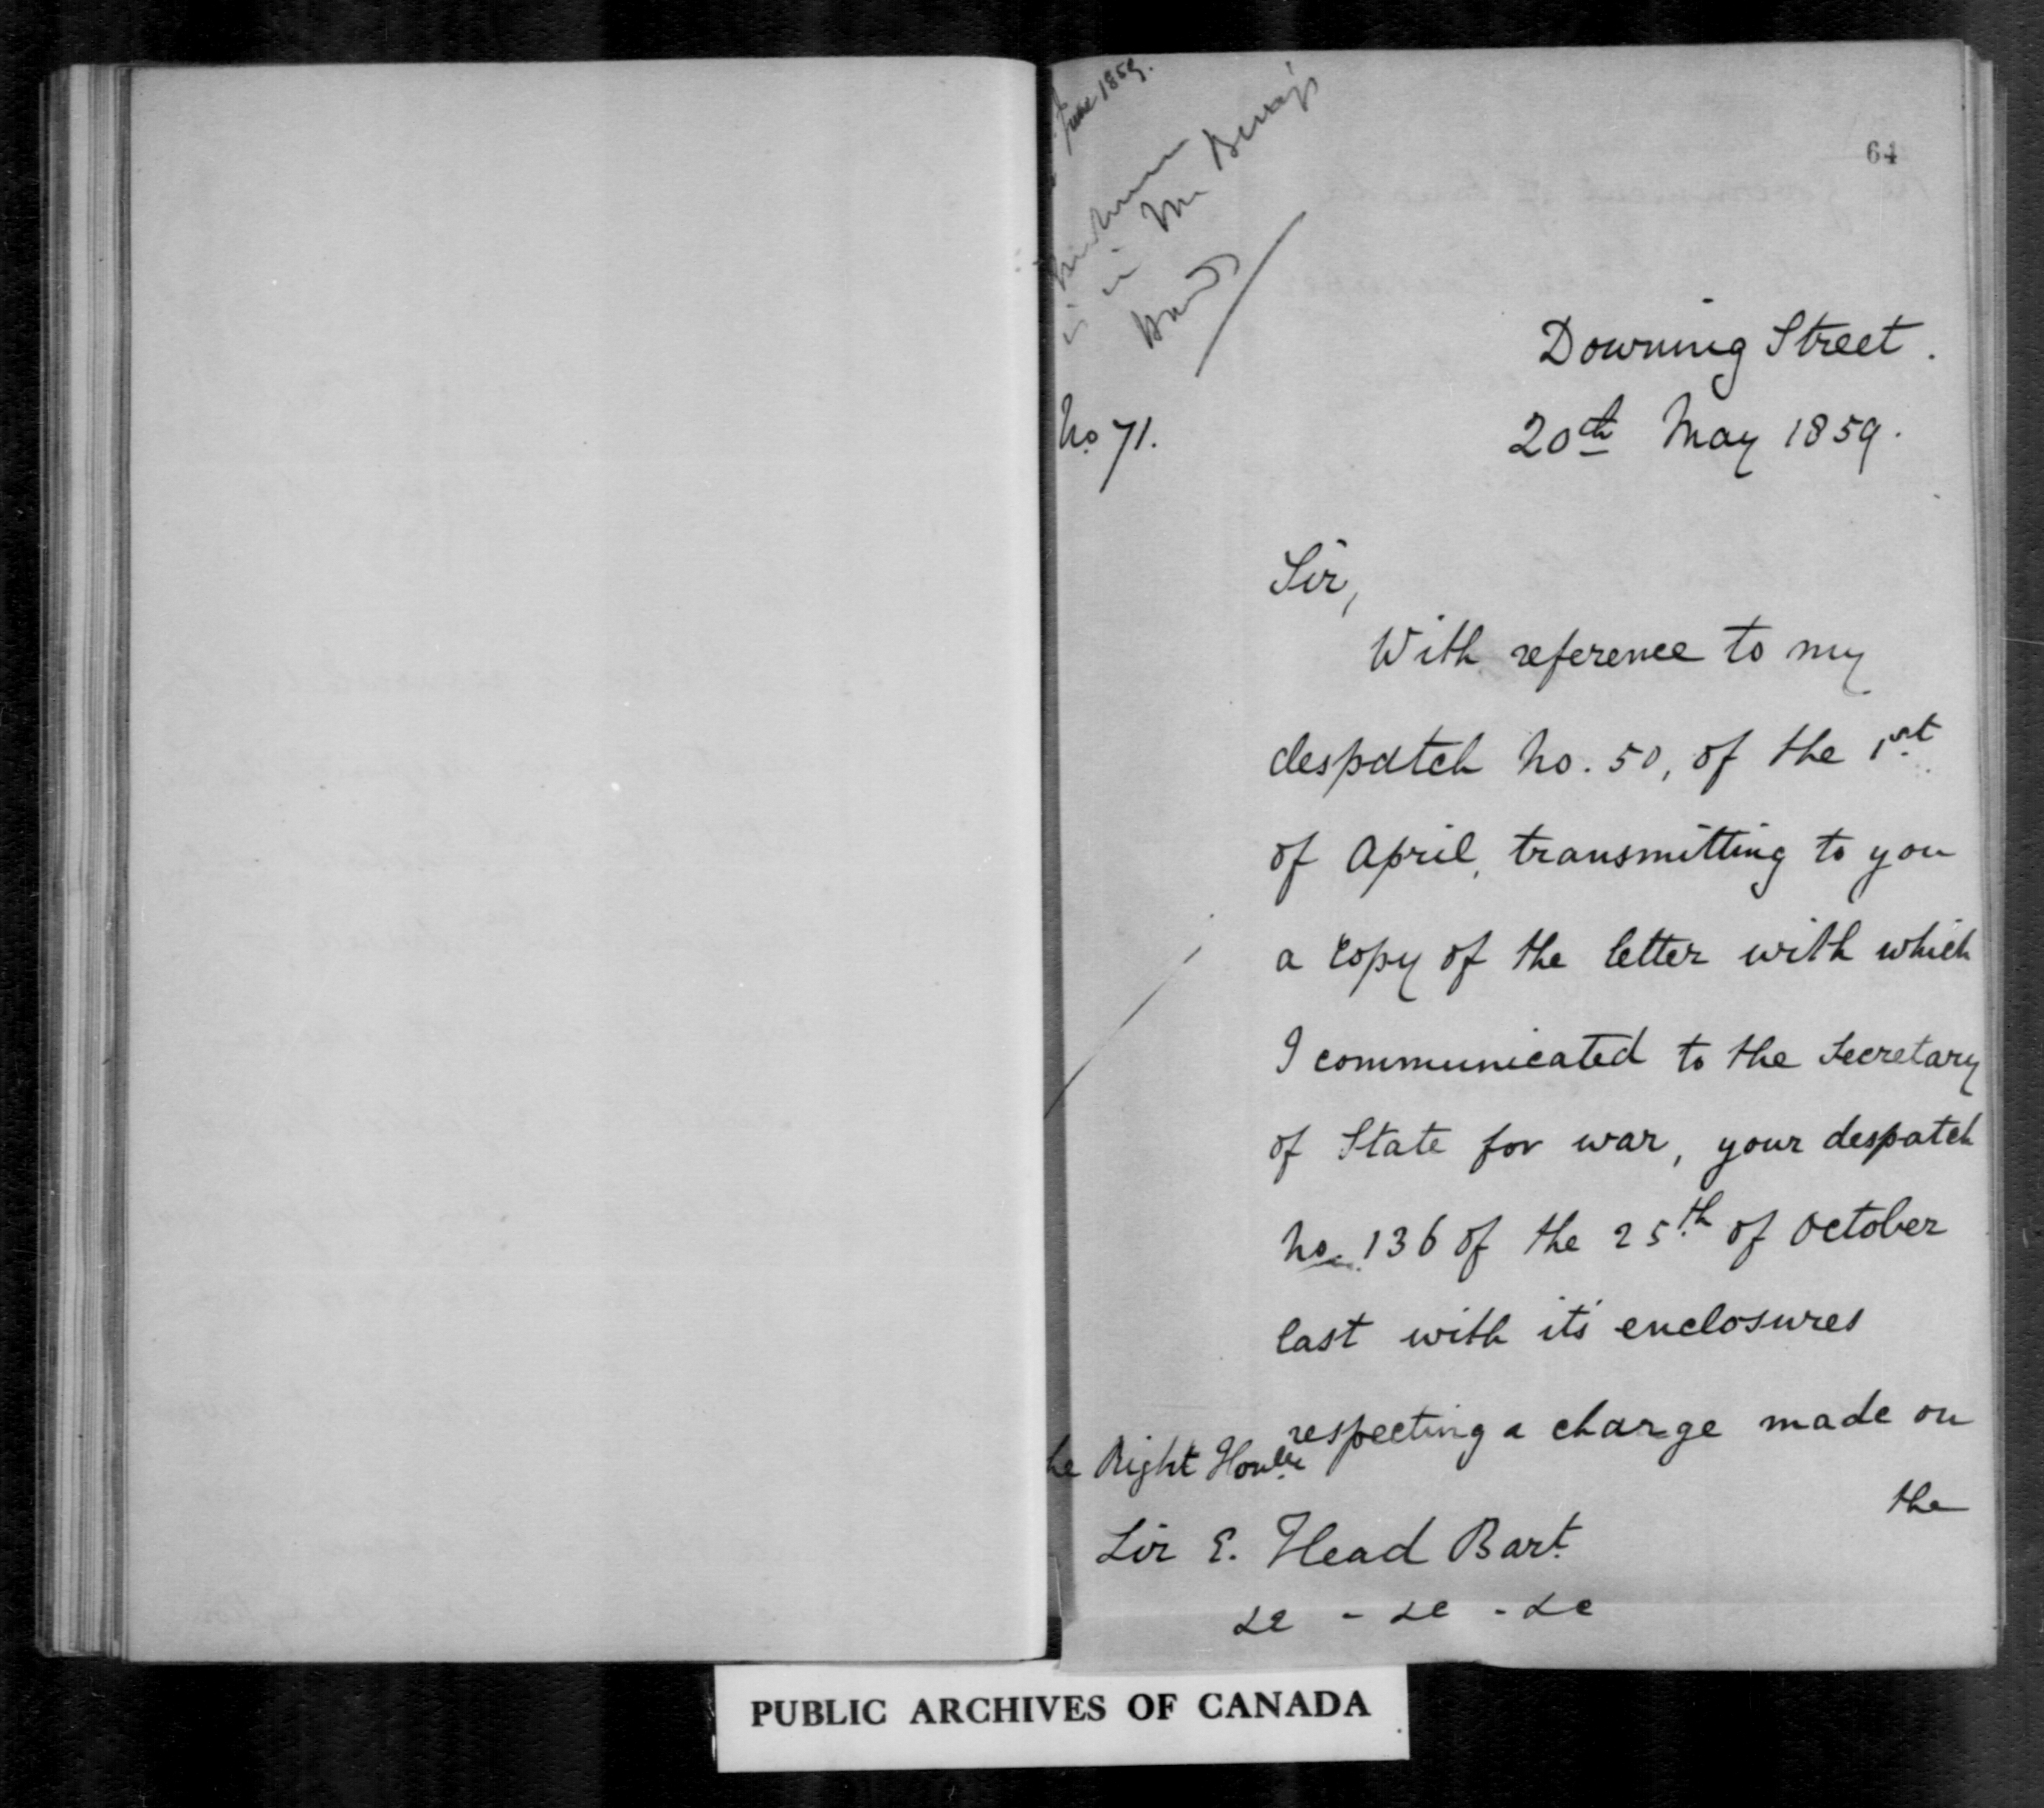 June 1859.
is in Mr
64
Downing Street.
No 71.
20th May 1859.
Sir,
With reference to my
despatch No. 50, of the 1st
of April, transmitting to you
a copy of the letter with which
I communicated to the Secretary
of State for war, your despatch
No. 136 of the 25th of October
last with it's enclosures
respecting a charge made on
the
he Right Honble
Sir E. Head Bart.
&c - &c - &c
PUBLIC ARCHIVES OF CANADA